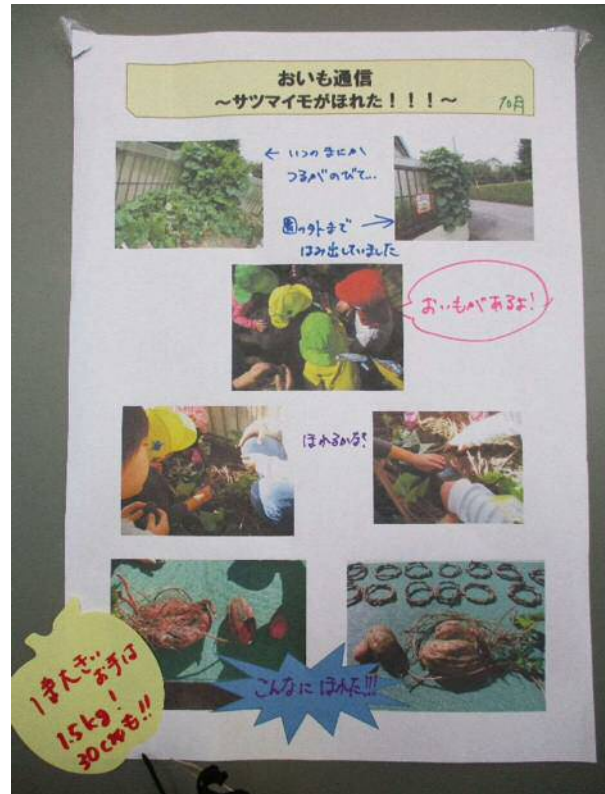 おいも通信
~サツマイモがほれた!!!~
10月
← いつのまにか
つるがのびて...
園の外まで →
はみ出していました
おいもがあるよ!
ほれるかな?
こんなに ほれた!!!
1.5kg!